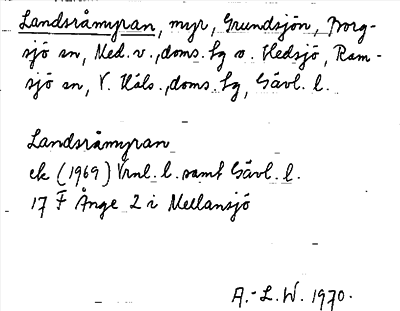 Landsråmyran, myr, Grundsjön, Borg-
sjö sn, Med. v., doms. Lg o. Hedsjö, Ram-
sjö sn, V. Häls., doms. Lg, Gävl. l.
Landsråmyran
ek (1969) Vrnl. l. samt Gävl. l.
17 F Ånge 2 i Mellansjö
A.-L. W. 1970.